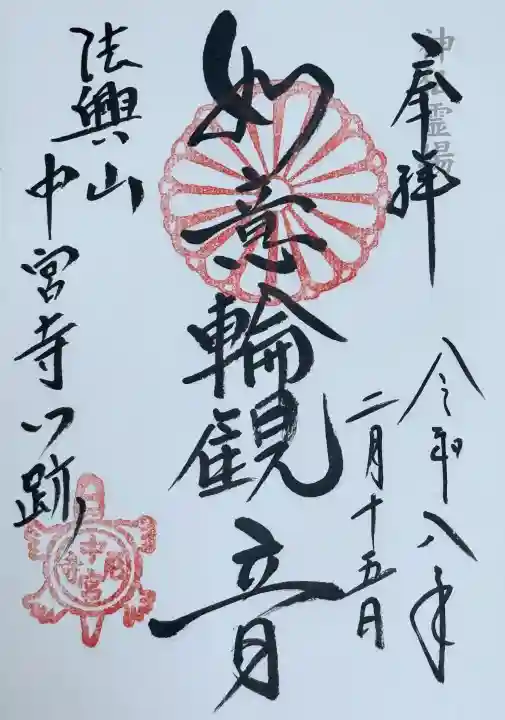 神仏霊場
奉拝
令和八年
二月十五日
如意輪観音
法興山
中宮寺門跡
中宮
尼寺